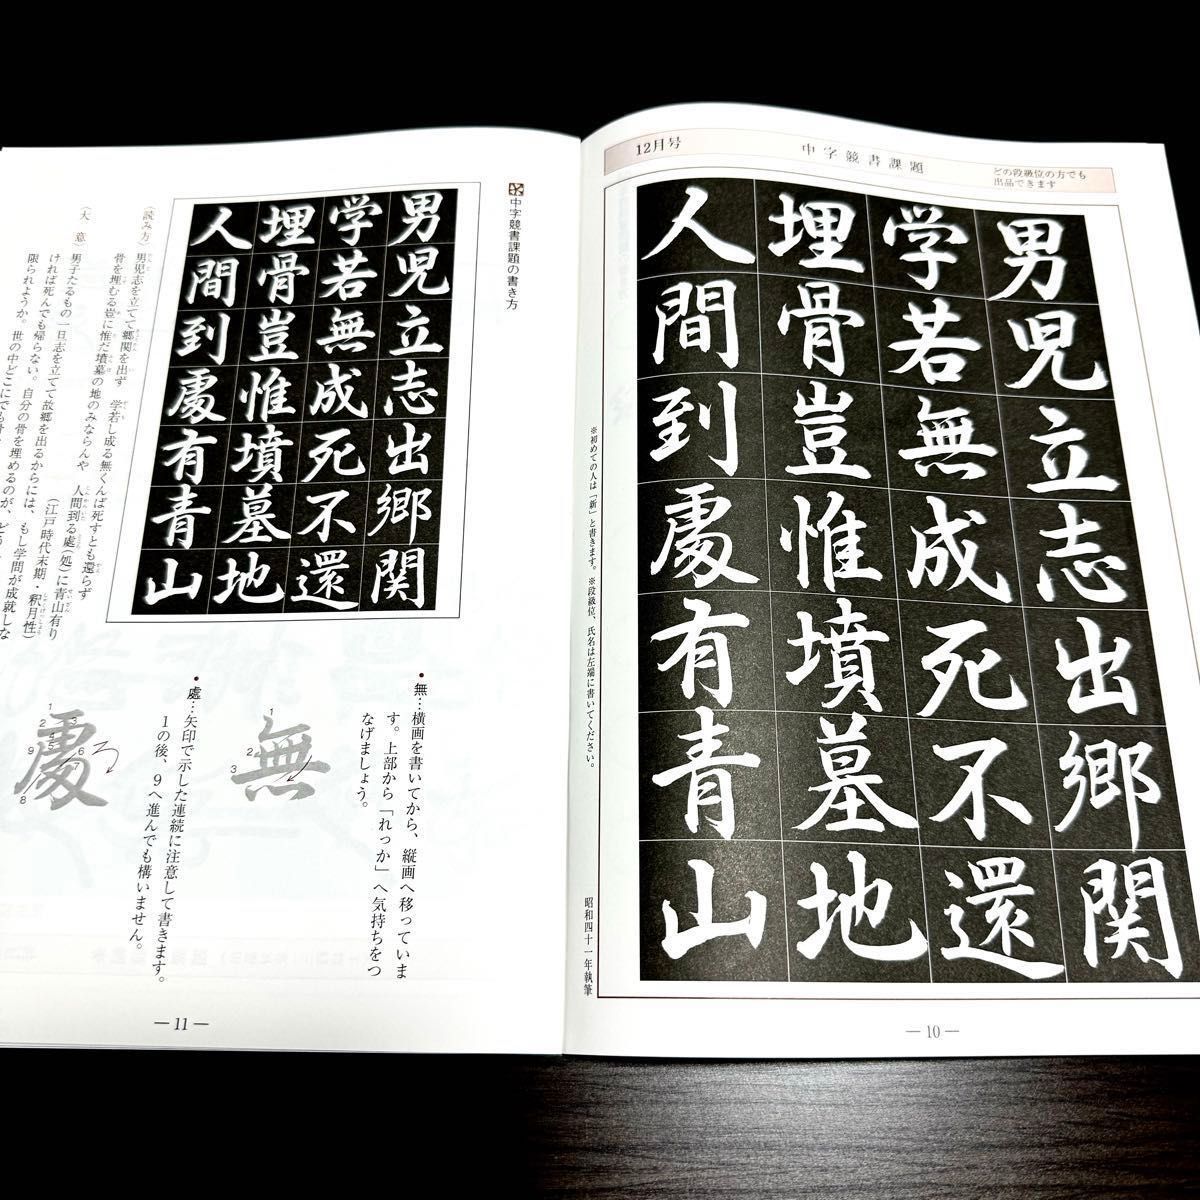 12月号
中字競書課題
どの段級位の方でも
出品できます
男児立志出郷関
学若無成死不還
埋骨豈惟墳墓地
人間到處有青山
※初めての人は「新」と書きます。※段級位、氏名は左端に書いてください。
昭和四十一年執筆
— 10 —
中字競書課題の書き方
男児立志出郷関
学若無成死不還
埋骨豈惟墳墓地
人間到處有青山
(読み方)男児志を立てて郷関を出ず 学若し成る無くんば死すとも還らず
骨を埋むる豈に惟だ墳墓の地のみならんや 人間到る處(処)に青山有り
(江戸時代末期・釈月性)
(大 意)男子たるもの一旦志を立てて故郷を出るからには、もし学問が成就しな
ければ死んでも帰らない。自分の骨を埋めるのが、
限られようか。世の中どこにでも
•無…横画を書いてから、縦画へ移っていま
す。上部から「れっか」へ気持ちをつ
なげましょう。
無
1
2
3
•處…矢印で示した連続に注意して書きます。
1の後、9へ進んでも構いません。
處
1
2
3
4
5
6
7
8
9
ろ
— 11 —